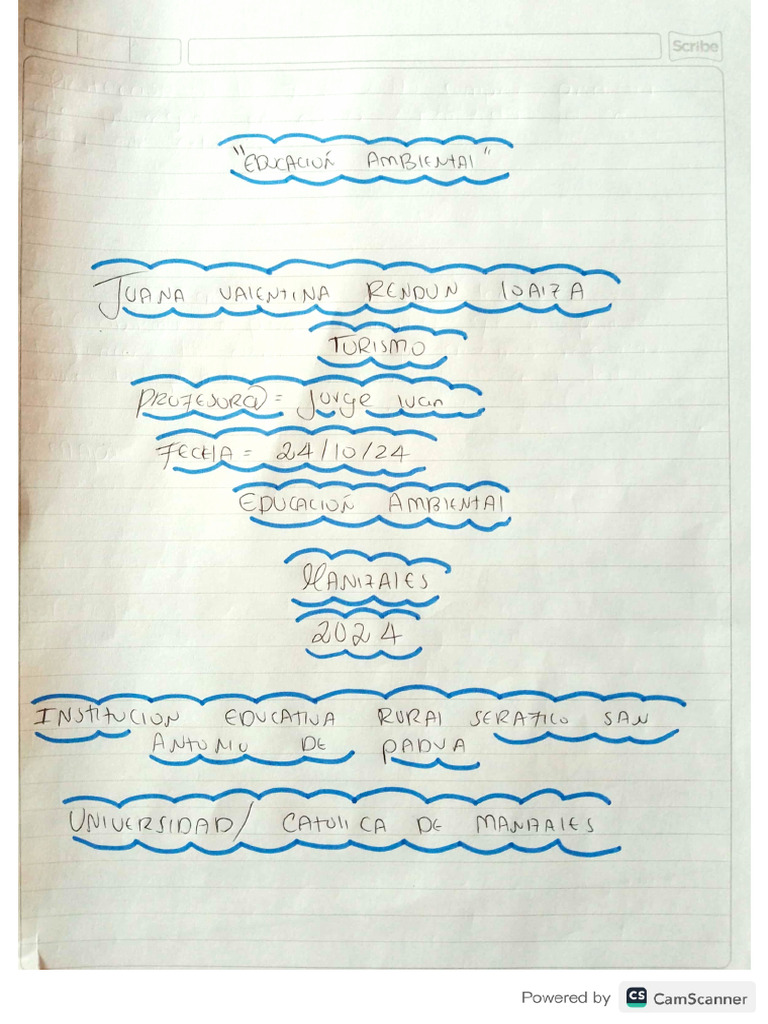 Scribe
"EDUCACIÓN AMBIENTAL"
JUANA VALENTINA RENDON LOAIZA
TURISMO
PROFESOR@ = Jorge Iván
FECHA = 24/10/24
EDUCACIÓN AMBIENTAL
MANIZALES
2024
INSTITUCION EDUCATIVA RURAL SERAFICO SAN
ANTONIO DE PADUA
UNIVERSIDAD/ CATOLICA DE MANIZALES
Powered by CS CamScanner